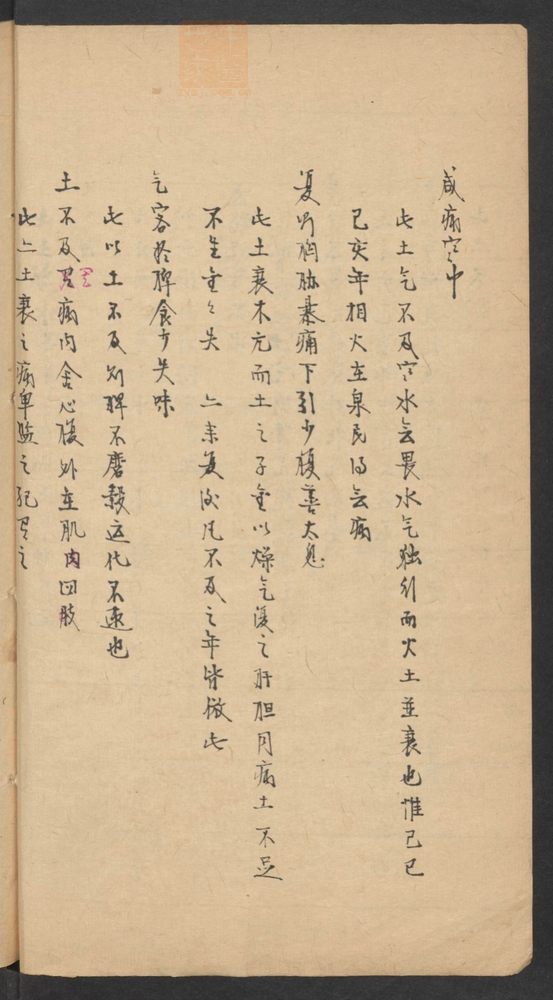 咸病寒中
此土气不及寒水无畏水气独行而火土並衰也惟己巳
己亥年相火在泉民得无病
复则胸胁暴痛下引少腹善太息
此土衰木亢而土之子金以燥气復之肝胆同病土不足
不生金金失 亦来复効凡不及之年皆倣此
气客於脾食少失味
此以土不及則脾不磨穀运化不速也
土不及 病内舍心腹外在肌肉四肢
此亠土衰之病卑监之纪